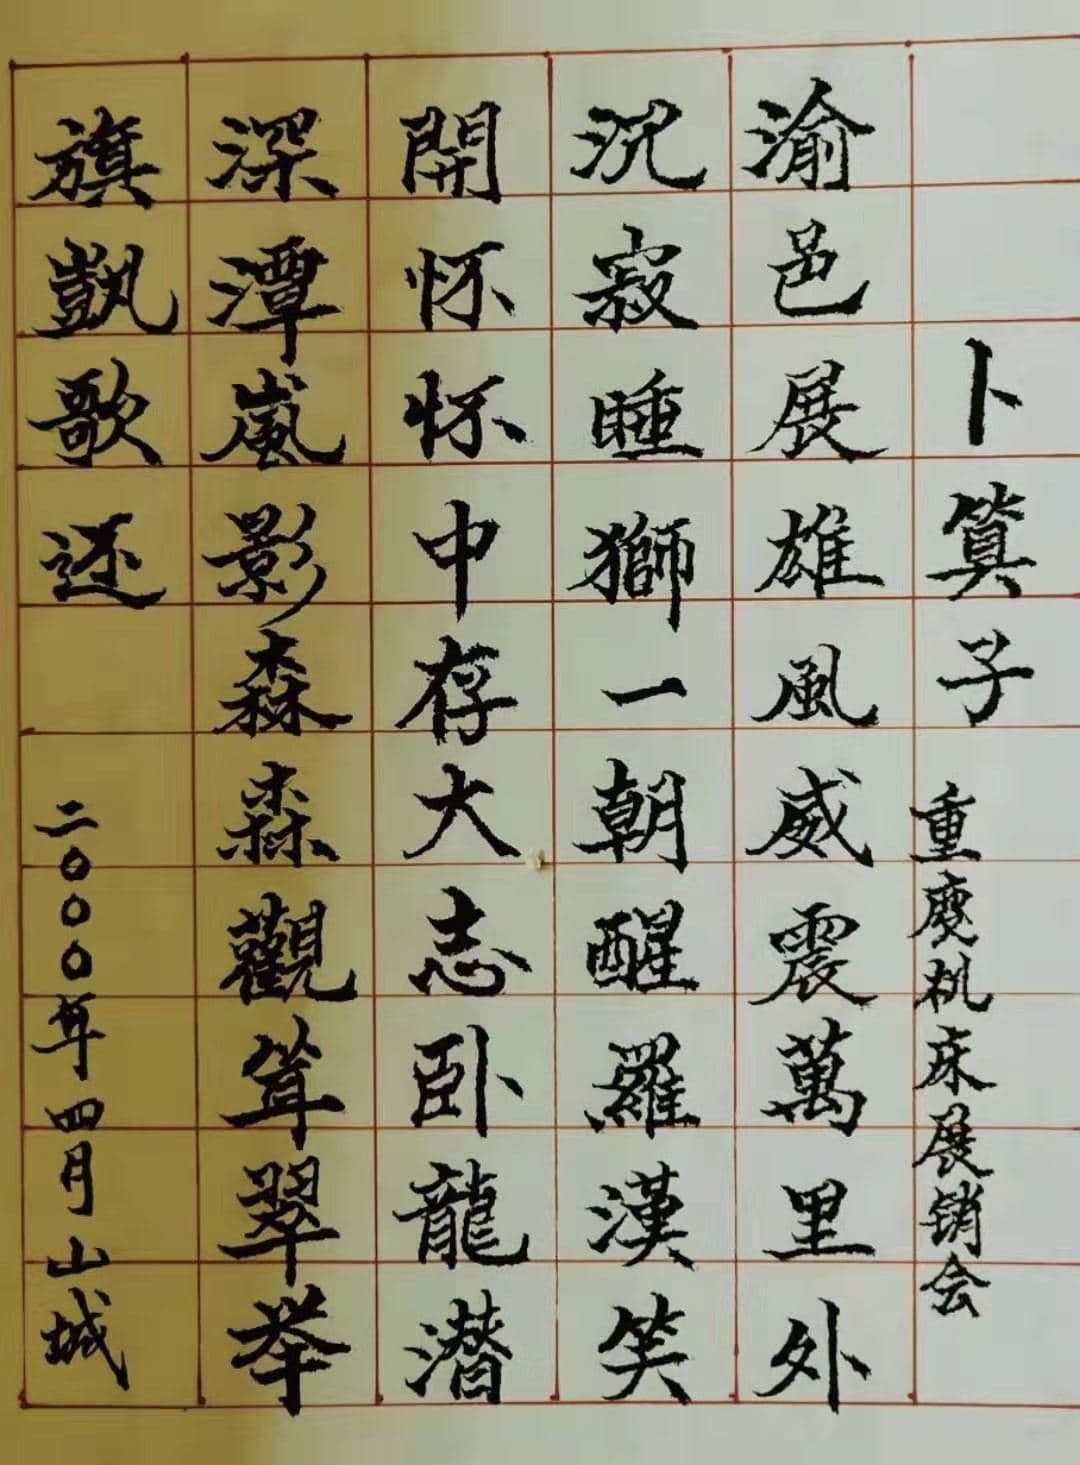 卜算子 重庆机床展销会
渝邑展雄風威震萬里外
沉寂睡獅一朝醒羅漢笑
開怀怀中存大志卧龍潜
深潭嵐影森森觀耸翠举
旗凱歌还
二〇〇〇年四月山城